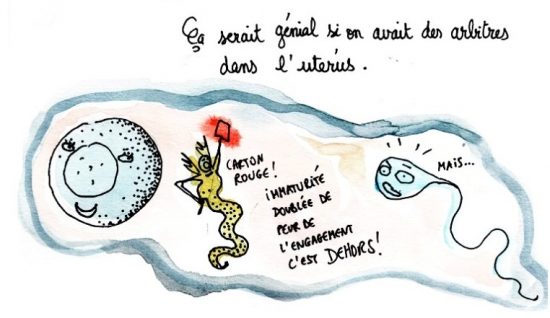 Ça serait génial si on avait des arbitres
dans l'utérus.
CARTON
ROUGE!
IMMATURITÉ
DOUBLÉE DE
PEUR DE
L'ENGAGEMENT
C'EST DEHORS!
MAIS...